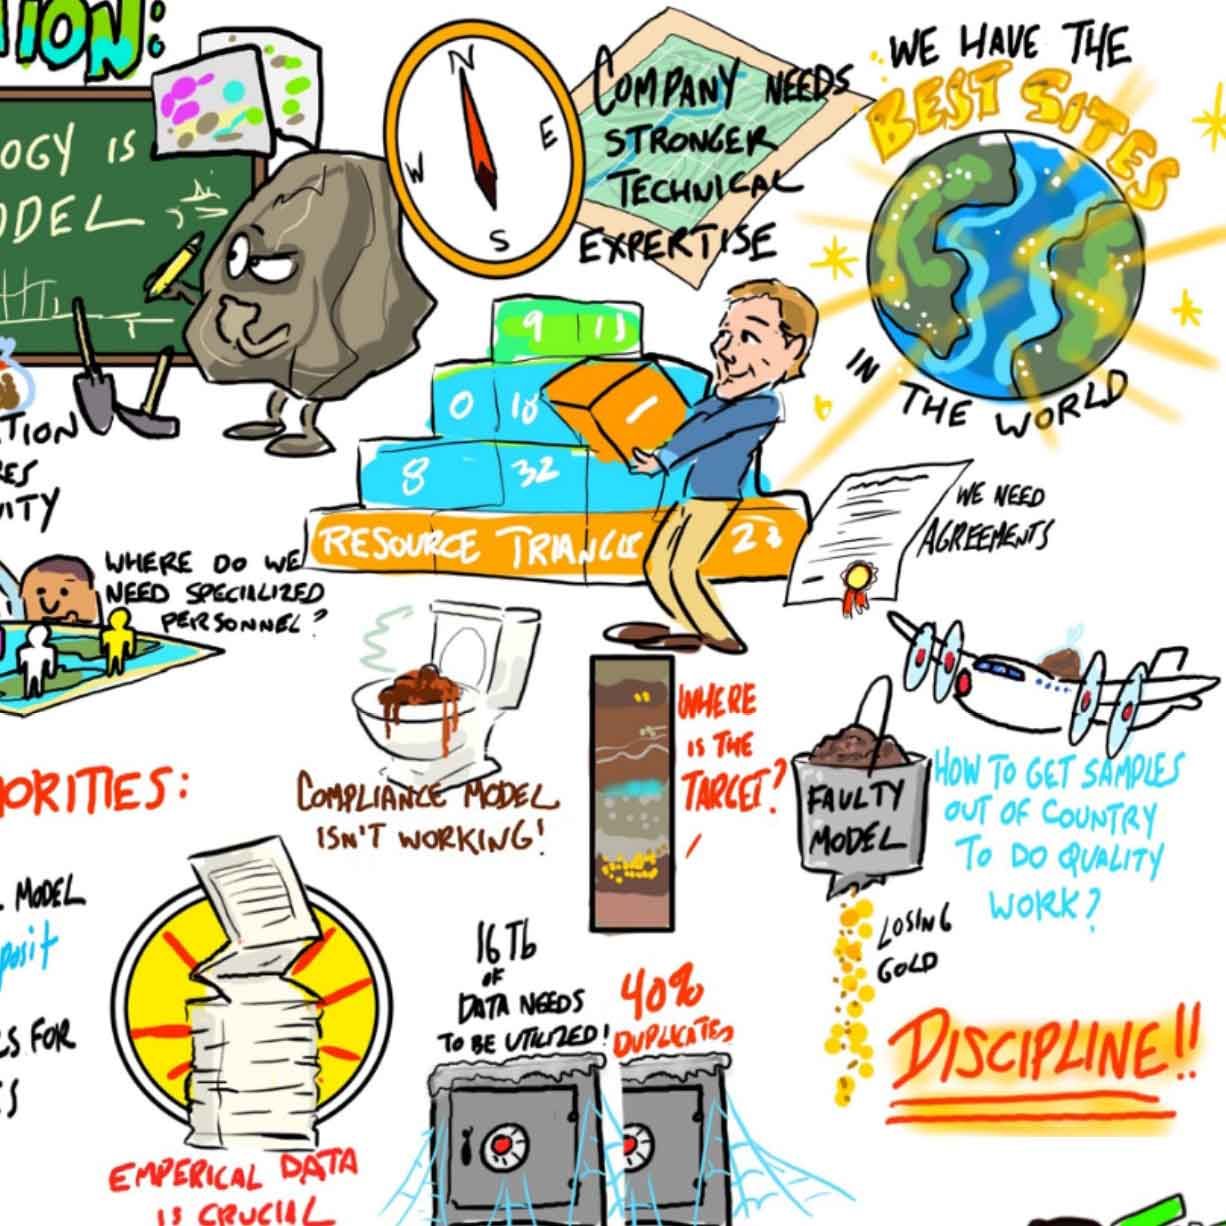 TION:
OGY IS
ODEL
N
E
W
S
COMPANY NEEDS
STRONGER
TECHNICAL
EXPERTISE
WE HAVE THE
BEST SITES
IN THE WORLD
9 11
0 18
1
8 32
RESOURCE TRIANGLE 23
WE NEED
AGREEMENTS
TION
RES
VITY
WHERE DO WE
NEED SPECIALIZED
PERSONNEL?
COMPLIANCE MODEL
ISN'T WORKING!
WHERE
IS THE
TARGET?
FAULTY
MODEL
LOSING
GOLD
HOW TO GET SAMPLES
OUT OF COUNTRY
TO DO QUALITY
WORK?
ORITIES:
L MODEL
posit
LS FOR
ES
EMPERICAL DATA
IS CRUCIAL
16 Tb
OF
DATA NEEDS
TO BE UTILIZED!
40%
DUPLICATES
DISCIPLINE!!